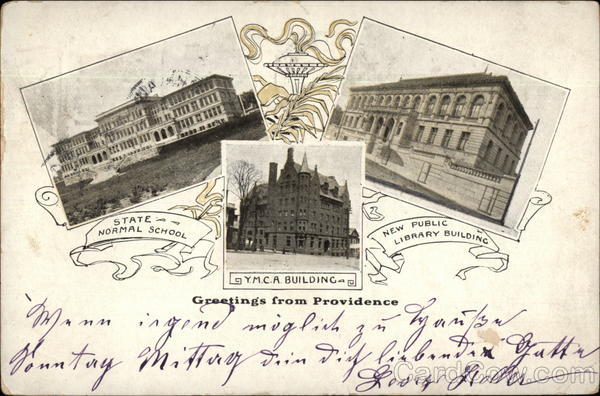 STATE
NORMAL SCHOOL
NEW PUBLIC
LIBRARY BUILDING
Y.M.C.A. BUILDING
Greetings from Providence
Wenn irgend möglich zu Hauße
Sonntag Mittag dein dich liebender Gatte
Georg
CardCow.com